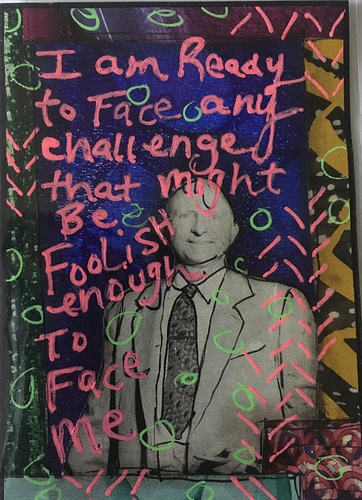 I am Ready
to Face any
challenge
that might
Be.
FooLisH
enough.
To
Face
me